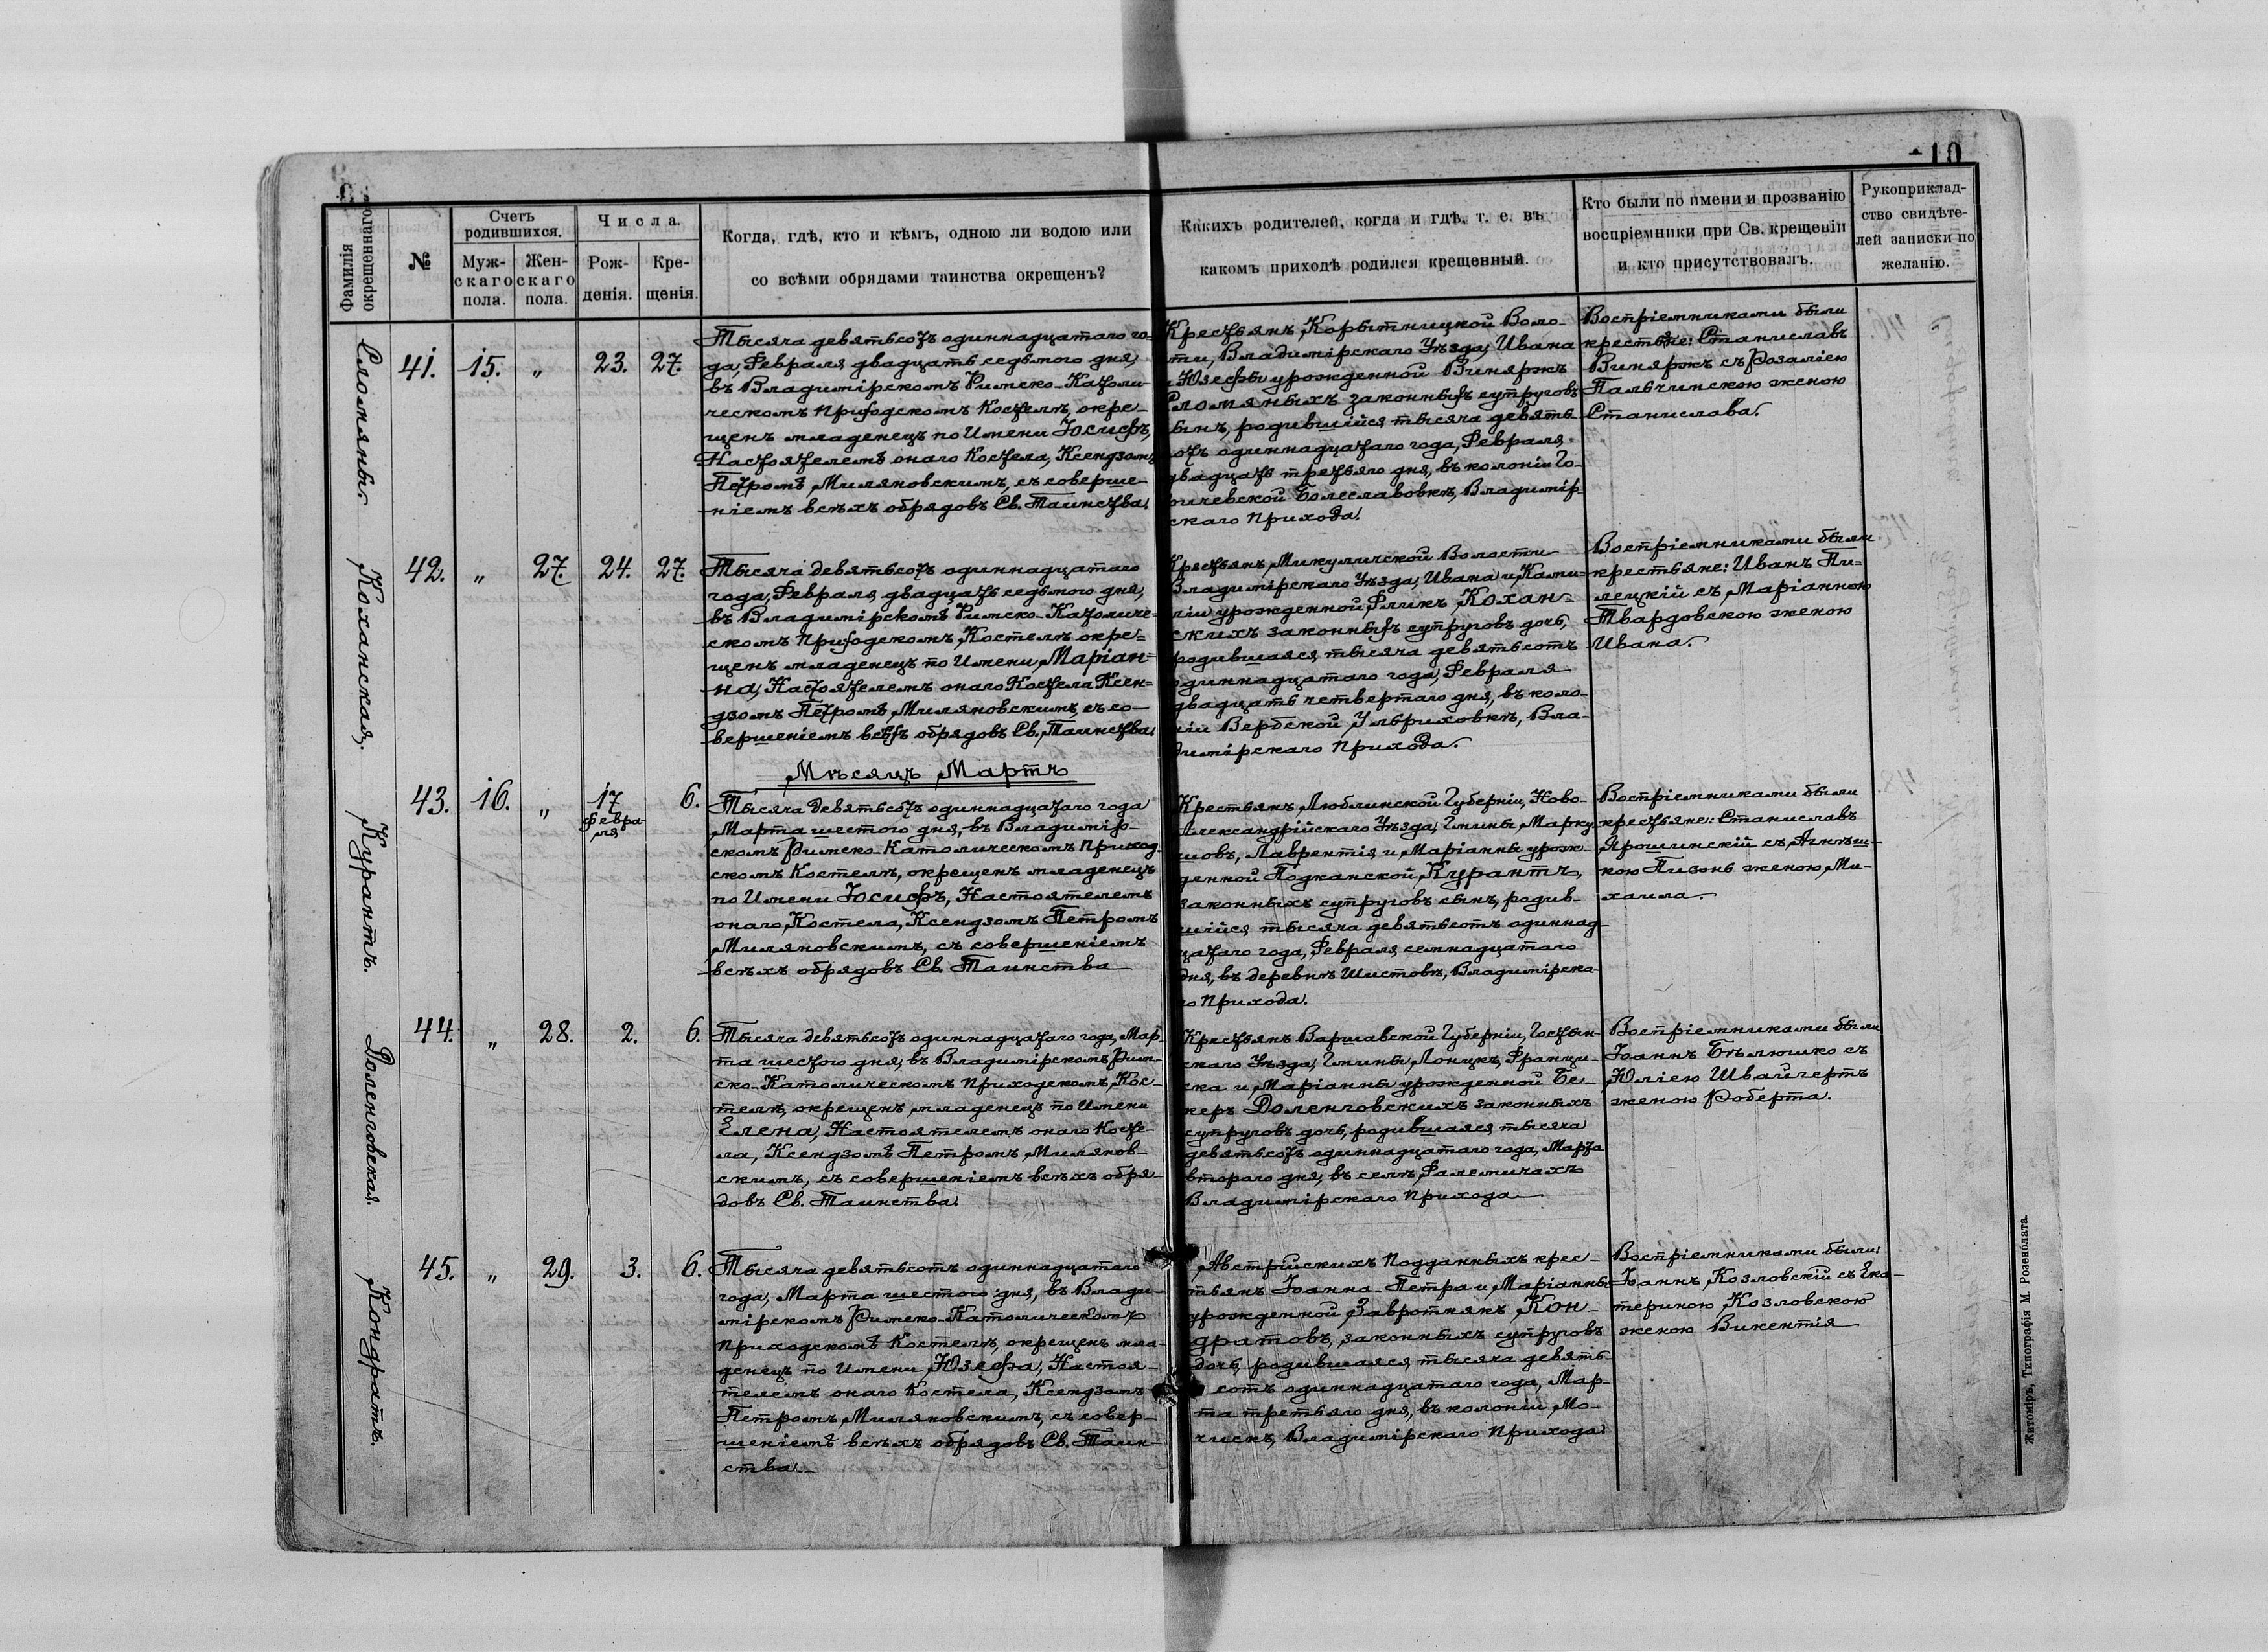 10
Фамилія
окрещеннаго
№
Счетъ
родившихся.
Муж-
скаго
пола.
Жен-
скаго
пола.
Числа.
Рож-
денія.
Кре-
щенія.
Когда, гдѣ, кто и кѣмъ, одною ли водою или
со всѣми обрядами таинства окрещенъ?
Какихъ родителей, когда и гдѣ, т. е. въ
какомъ приходѣ родился крещенный.
Кто были по имени и прозванію
воспріемники при Св. крещеніи
и кто присутствовалъ.
Рукоприклад-
ство свидѣте-
лей записки по
желанію.
Сломяны.
41. 15. „ 23. 27.
Тысяча девятьсотъ одиннадцатаго го-
да, Февраля двадцать седьмого дня,
въ Владимірскомъ Римско-Католи-
ческомъ приходскомъ Костелѣ, окре-
щенъ младенецъ по Имени Юсифъ,
Настоятелемъ онаго Костела, Ксендзомъ
Петромъ Миляновскимъ, съ соверше-
ніемъ всѣхъ обрядовъ Св. Таинства.
Крестьянъ, Корытницкой Воло-
сти, Владимірскаго Уѣзда, Ивана
и Юзефы урожденной Виняржъ
Сломяныхъ законныхъ супруговъ
сынъ, родившійся тысяча девять-
сотъ одиннадцатаго года, Февраля
двадцать третьяго дня, въ колоніи Го-
ричевской Болеславовкѣ, Владимір-
скаго прихода.
Воспріемниками были
крестьяне: Станиславъ
Виняржъ съ Розаліею
Пальчинскою женою
Станислава.
Коханская.
42. „ 27. 24. 27.
Тысяча девятьсотъ одиннадцатаго
года, Февраля двадцать седьмого дня,
въ Владимірскомъ Римско-Католиче-
скомъ приходскомъ, Костелѣ окре-
щенъ младенецъ по Имени Маріан-
на, Настоятелемъ онаго Костела Ксен-
дзомъ Петромъ Миляновскимъ, съ со-
вершеніемъ всѣхъ обрядовъ Св. Таинства.
Крестьянъ, Микуличской Волости
Владимірскаго Уѣзда, Ивана и Ками-
ліи урожденной Фликъ, Кохан-
скихъ законныхъ супруговъ дочь,
родившаяся тысяча девятьсотъ
одиннадцатаго года, Февраля
двадцать четвертаго дня, въ коло-
ніи Вербской Ульриховкѣ, Вла-
димірскаго прихода.
Воспріемниками были
крестьяне: Иванъ Пи-
лецкій съ Маріанною
Твардовскою женою
Ивана.
Мѣсяцъ Мартъ
Курантъ.
43. 16. „ 17 Февра-
ля
6.
Тысяча девятьсотъ одиннадцатаго года
Марта шестого дня, въ Владимір-
скомъ Римско-Католическомъ приход-
скомъ Костелѣ, окрещенъ младенецъ
по Имени Юсифъ, Настоятелемъ
онаго Костела, Ксендзомъ Петромъ
Миляновскимъ, съ совершеніемъ
всѣхъ обрядовъ Св. Таинства
Крестьянъ Люблинской Губерніи, Ново-
Александрійскаго Уѣзда, Гмины Марку-
шовъ, Лаврентія и Маріанны урож-
денной Подканской, Курантъ,
законныхъ супруговъ сынъ, родив-
шійся тысяча девятьсотъ одиннад-
цатаго года, Февраля семнадцатаго
дня, въ деревнѣ Шистовѣ, Владимірска-
го прихода.
Воспріемниками были
крестьяне: Станиславъ
Ярошинскій съ Агнѣш-
кою Пизонь женою Ми-
хаила.
Доленговская.
44. „ 28. 2. 6.
Тысяча девятьсотъ одиннадцатаго года, Мар-
та шестого дня, въ Владимірскомъ Рим-
ско-Католическомъ приходскомъ, Кос-
телѣ, окрещенъ младенецъ по Имени
Елена, Настоятелемъ онаго Косте-
ла, Ксендзомъ Петромъ Милянов-
скимъ, съ совершеніемъ всѣхъ обря-
довъ Св. Таинства.
Крестьянъ Варшавской Губерніи, Гостын-
скаго Уѣзда, Гмины Лонцкъ, Францы-
ска и Маріанны урожденной Бе-
керъ Доленговскихъ законныхъ
супруговъ дочь, родившаяся тысяча
девятьсотъ одиннадцатаго года, Марта
второго дня, въ селѣ Фалемичахъ
Владимірскаго прихода
Воспріемниками были
Іоаннъ Бѣлюшко съ
Юліею Швайгертъ
женою Роберта.
Кондратъ.
45. „ 29. 3. 6.
Тысяча девятьсотъ одиннадцатаго
года, Марта шестого дня, въ Влади-
мірскомъ Римско-Католическомъ
приходскомъ Костелѣ, окрещенъ мла-
денецъ по Имени Юзефа, Настоя-
телемъ онаго Костела, Ксендзомъ
Петромъ Миляновскимъ, съ совер-
шеніемъ всѣхъ обрядовъ Св. Таин-
ства.
Австрійскихъ подданныхъ крес-
тьянъ Іоанна-Петра и Маріанны
урожденной Завротнякъ, Кон-
дратовъ, законныхъ супруговъ
дочь, родившаяся тысяча девять-
сотъ одиннадцатаго года, Мар-
та третьяго дня, въ колоніи Мо-
гискѣ, Владимірскаго прихода
Воспріемниками были
Іоаннъ Козловскій съ Ека-
териною Козловскою
женою Викентія
Житоміръ, Типографія М. Розенблата.